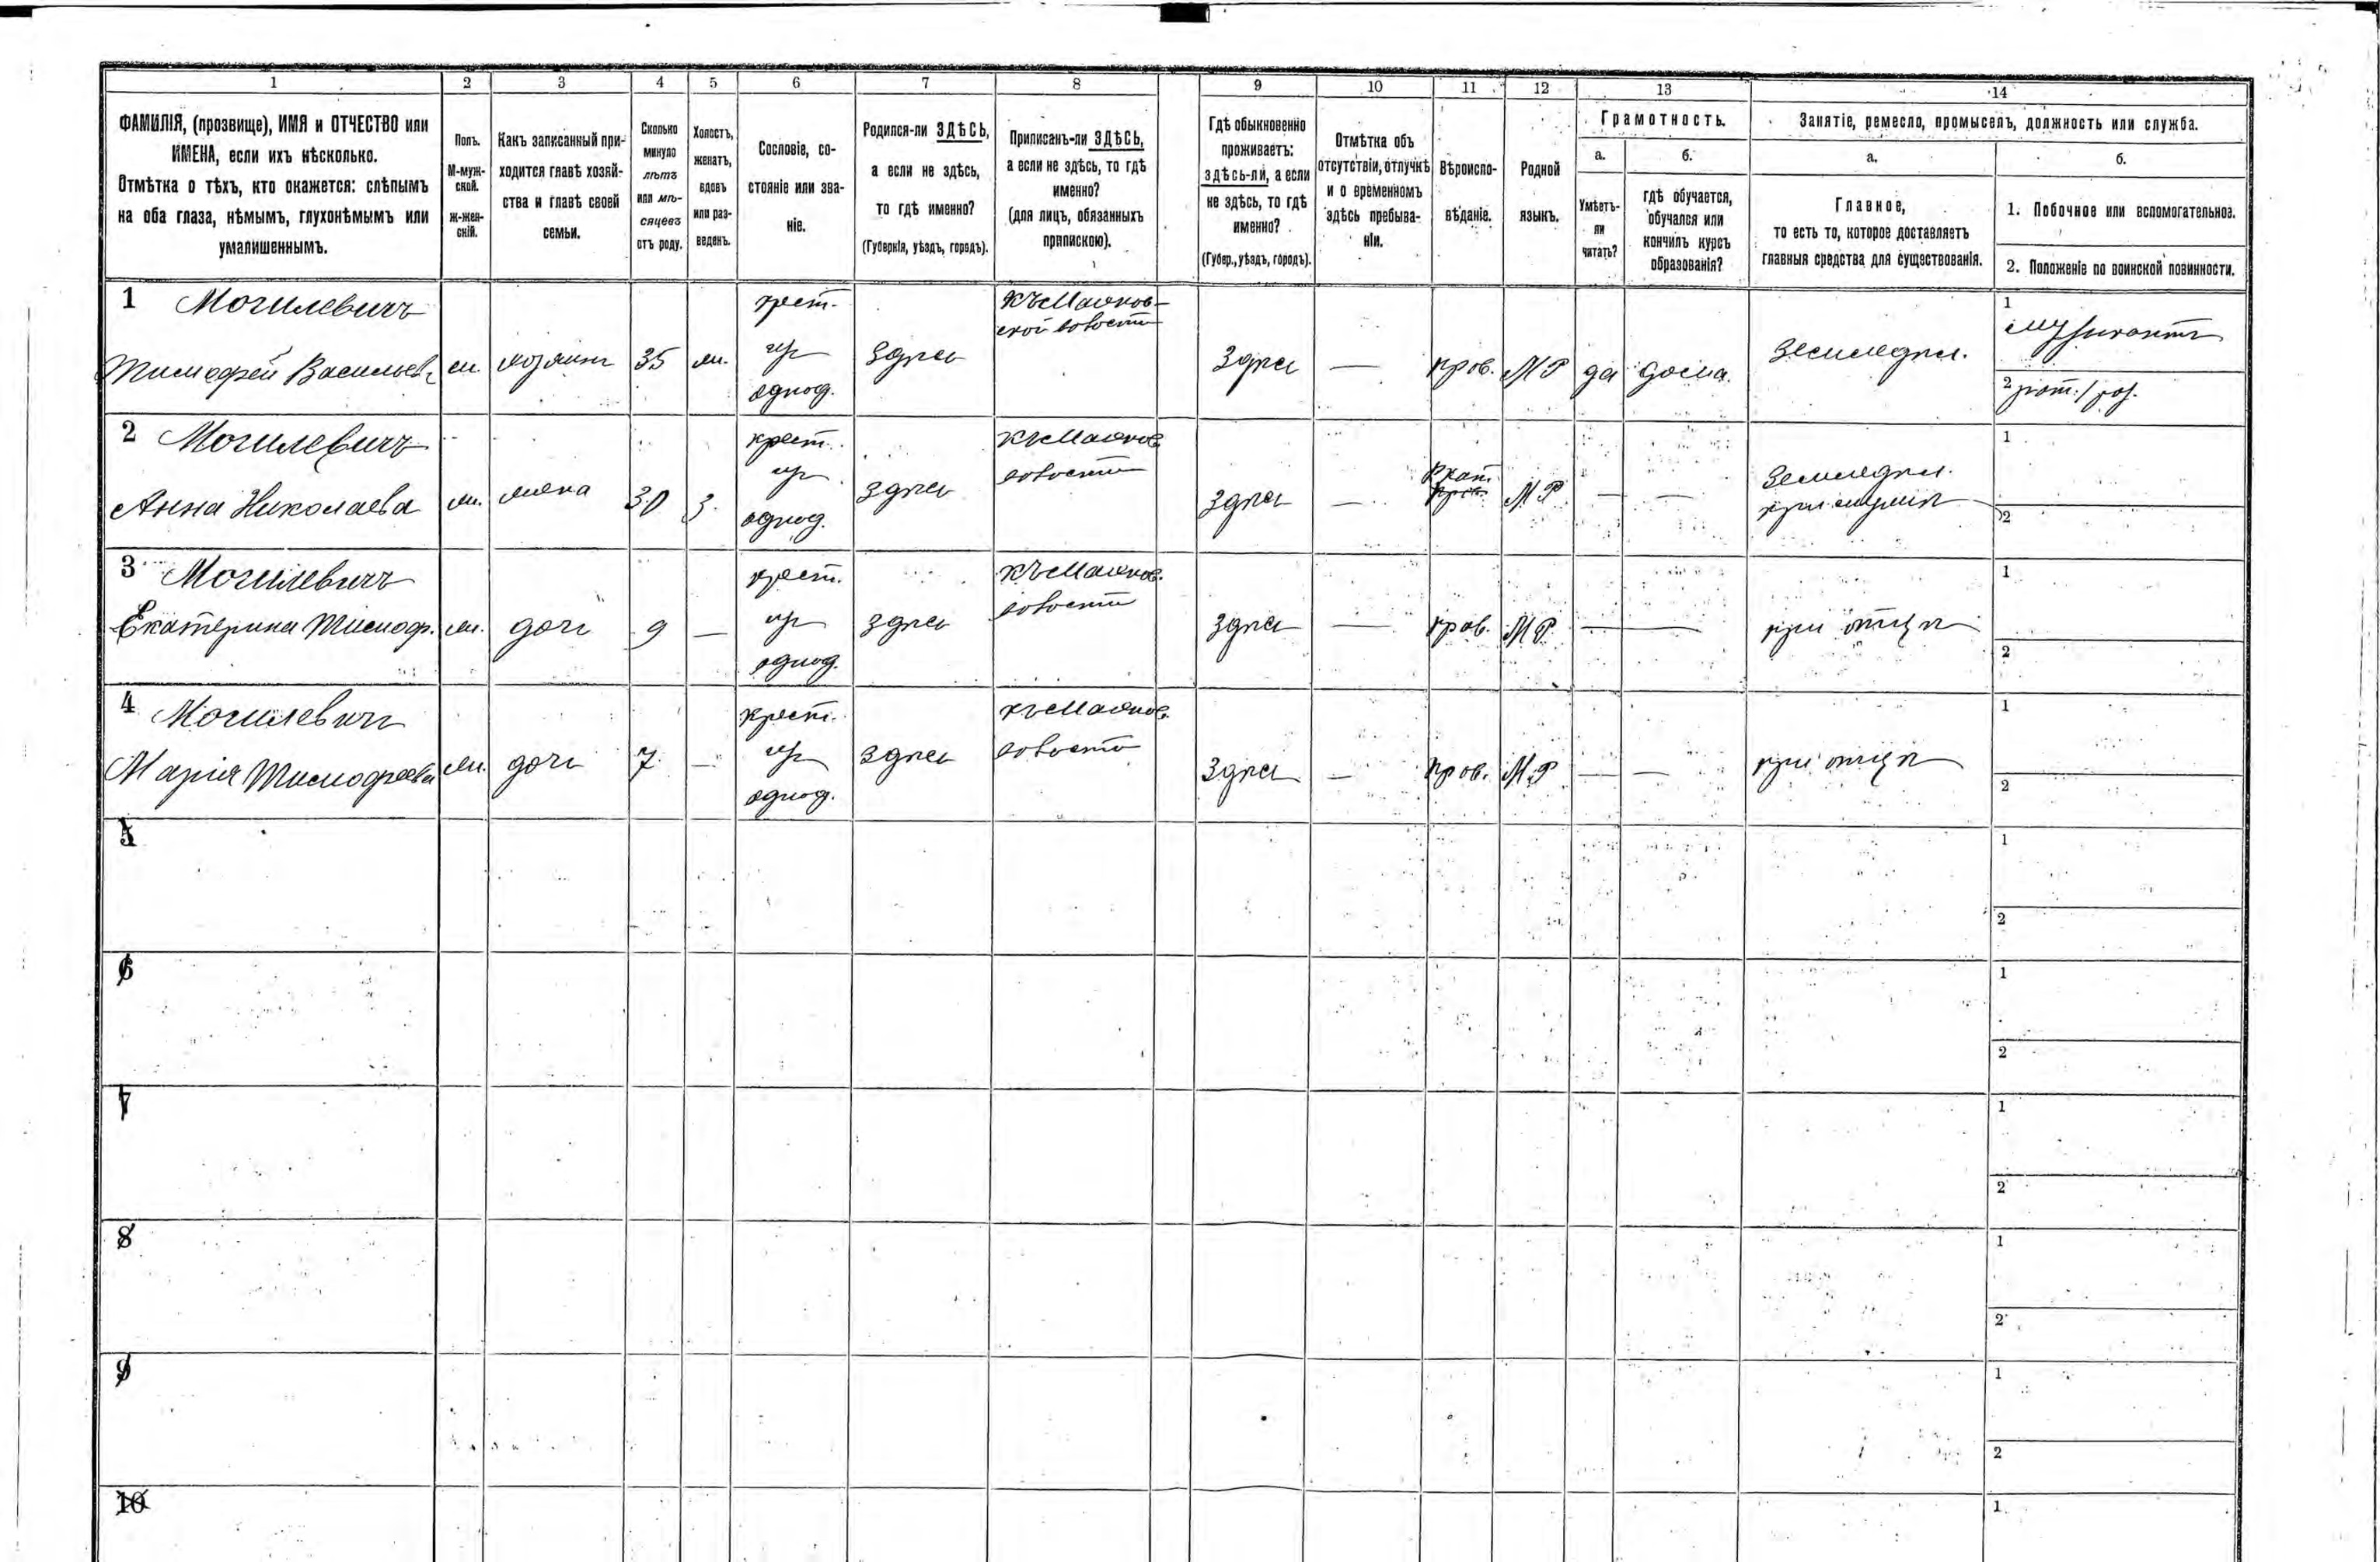 1 2 3 4 5 6 7 8 9 10 11 12 13 14
ФАМИЛІЯ, (прозвище), ИМЯ и ОТЧЕСТВО или
ИМЕНА, если ихъ нѣсколько.
Отмѣтка о тѣхъ, кто окажется: слѣпымъ
на оба глаза, нѣмымъ, глухонѣмымъ или
умалишеннымъ.
Полъ.
М-муж-
ской.
Ж-жен-
скій.
Какъ записанный при-
ходится главѣ хозяй-
ства и главѣ своей
семьи.
Сколько
минуло
лѣтъ
или мѣ-
сяцевъ
отъ роду.
Холостъ,
женатъ,
вдовъ
или раз-
веденъ.
Сословіе, со-
стояніе или зва-
ніе.
Родился-ли ЗДѢСЬ,
а если не здѣсь,
то гдѣ именно?
(Губернія, уѣздъ, городъ).
Приписанъ-ли ЗДѢСЬ,
а если не здѣсь, то гдѣ
именно?
(для лицъ, обязанныхъ
припискою).
Гдѣ обыкновенно
проживаетъ:
здѣсь-ли, а если
не здѣсь, то гдѣ
именно?
(Губер., уѣздъ, городъ).
Отмѣтка объ
отсутствіи, отлучкѣ
и о временномъ
здѣсь пребыва-
ніи.
Вѣроиспо-
вѣданіе.
Родной
языкъ.
Грамотность.
а.
Умѣетъ-
ли
читать?
б.
гдѣ обучается,
обучался или
кончилъ курсъ
образованія?
Занятіе, ремесло, промыселъ, должность или служба.
а.
Главное,
то есть то, которое доставляетъ
главныя средства для существованія.
б.
1. Побочное или вспомогательное.
2. Положеніе по воинской повинности.
1 Могилевичъ
Тимофей Васильев
м.
хозяинъ
35
ж.
крест.
изъ
однод.
здѣсь
къ Маков-
ской волости
здѣсь
—
прав.
МР
да
дома.
земледѣл.
1
музыкантъ
2
2 Могилевичъ
Анна Николаева
ж.
жена
30
з.
крест.
изъ
однод.
здѣсь
къ Маков.
волости
здѣсь
—
Ркат.
МР
—
—
земледѣл.
при мужѣ
1
2
3 Могилевичъ
Екатерина Тимоф.
ж.
дочь
9
—
крест.
изъ
однод.
здѣсь
къ Маков.
волости
здѣсь
—
прав.
МР
—
при отцѣ
1
2
4 Могилевичъ
Марія Тимофеева
ж.
дочь
7
—
крест.
изъ
однод.
здѣсь
къ Маков.
волости
здѣсь
—
прав.
МР
—
—
при отцѣ
1
2
5
1
2
6
1
2
7
1
2
8
1
2
9
1
2
10
1